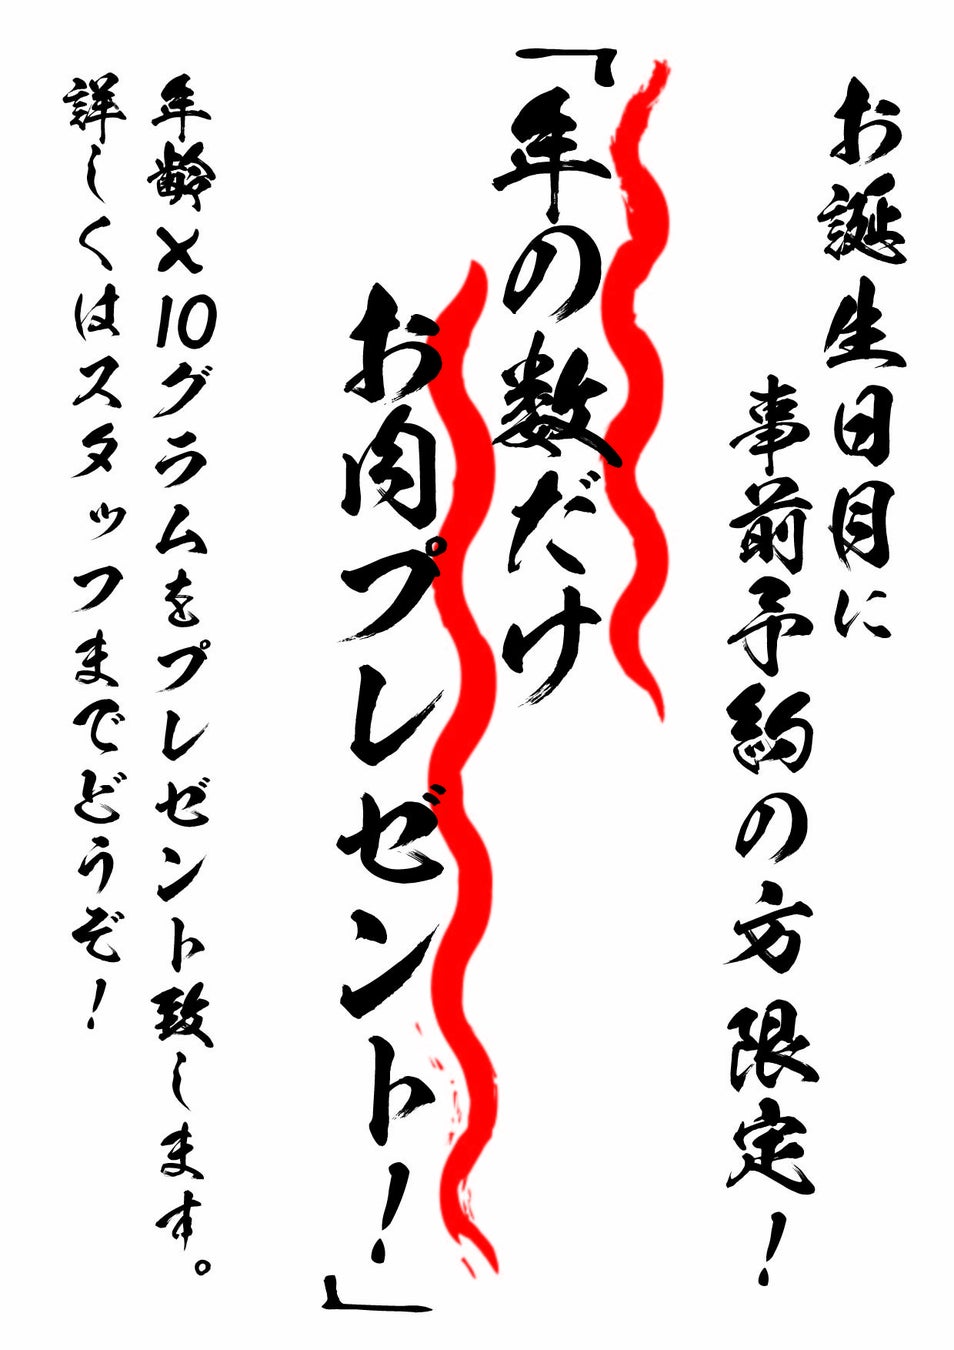 お誕生日月に
事前予約の方 限定！
「年の数だけ
お肉プレゼント！」
年齢×10グラムをプレゼント致します。
詳しくはスタッフまでどうぞ！